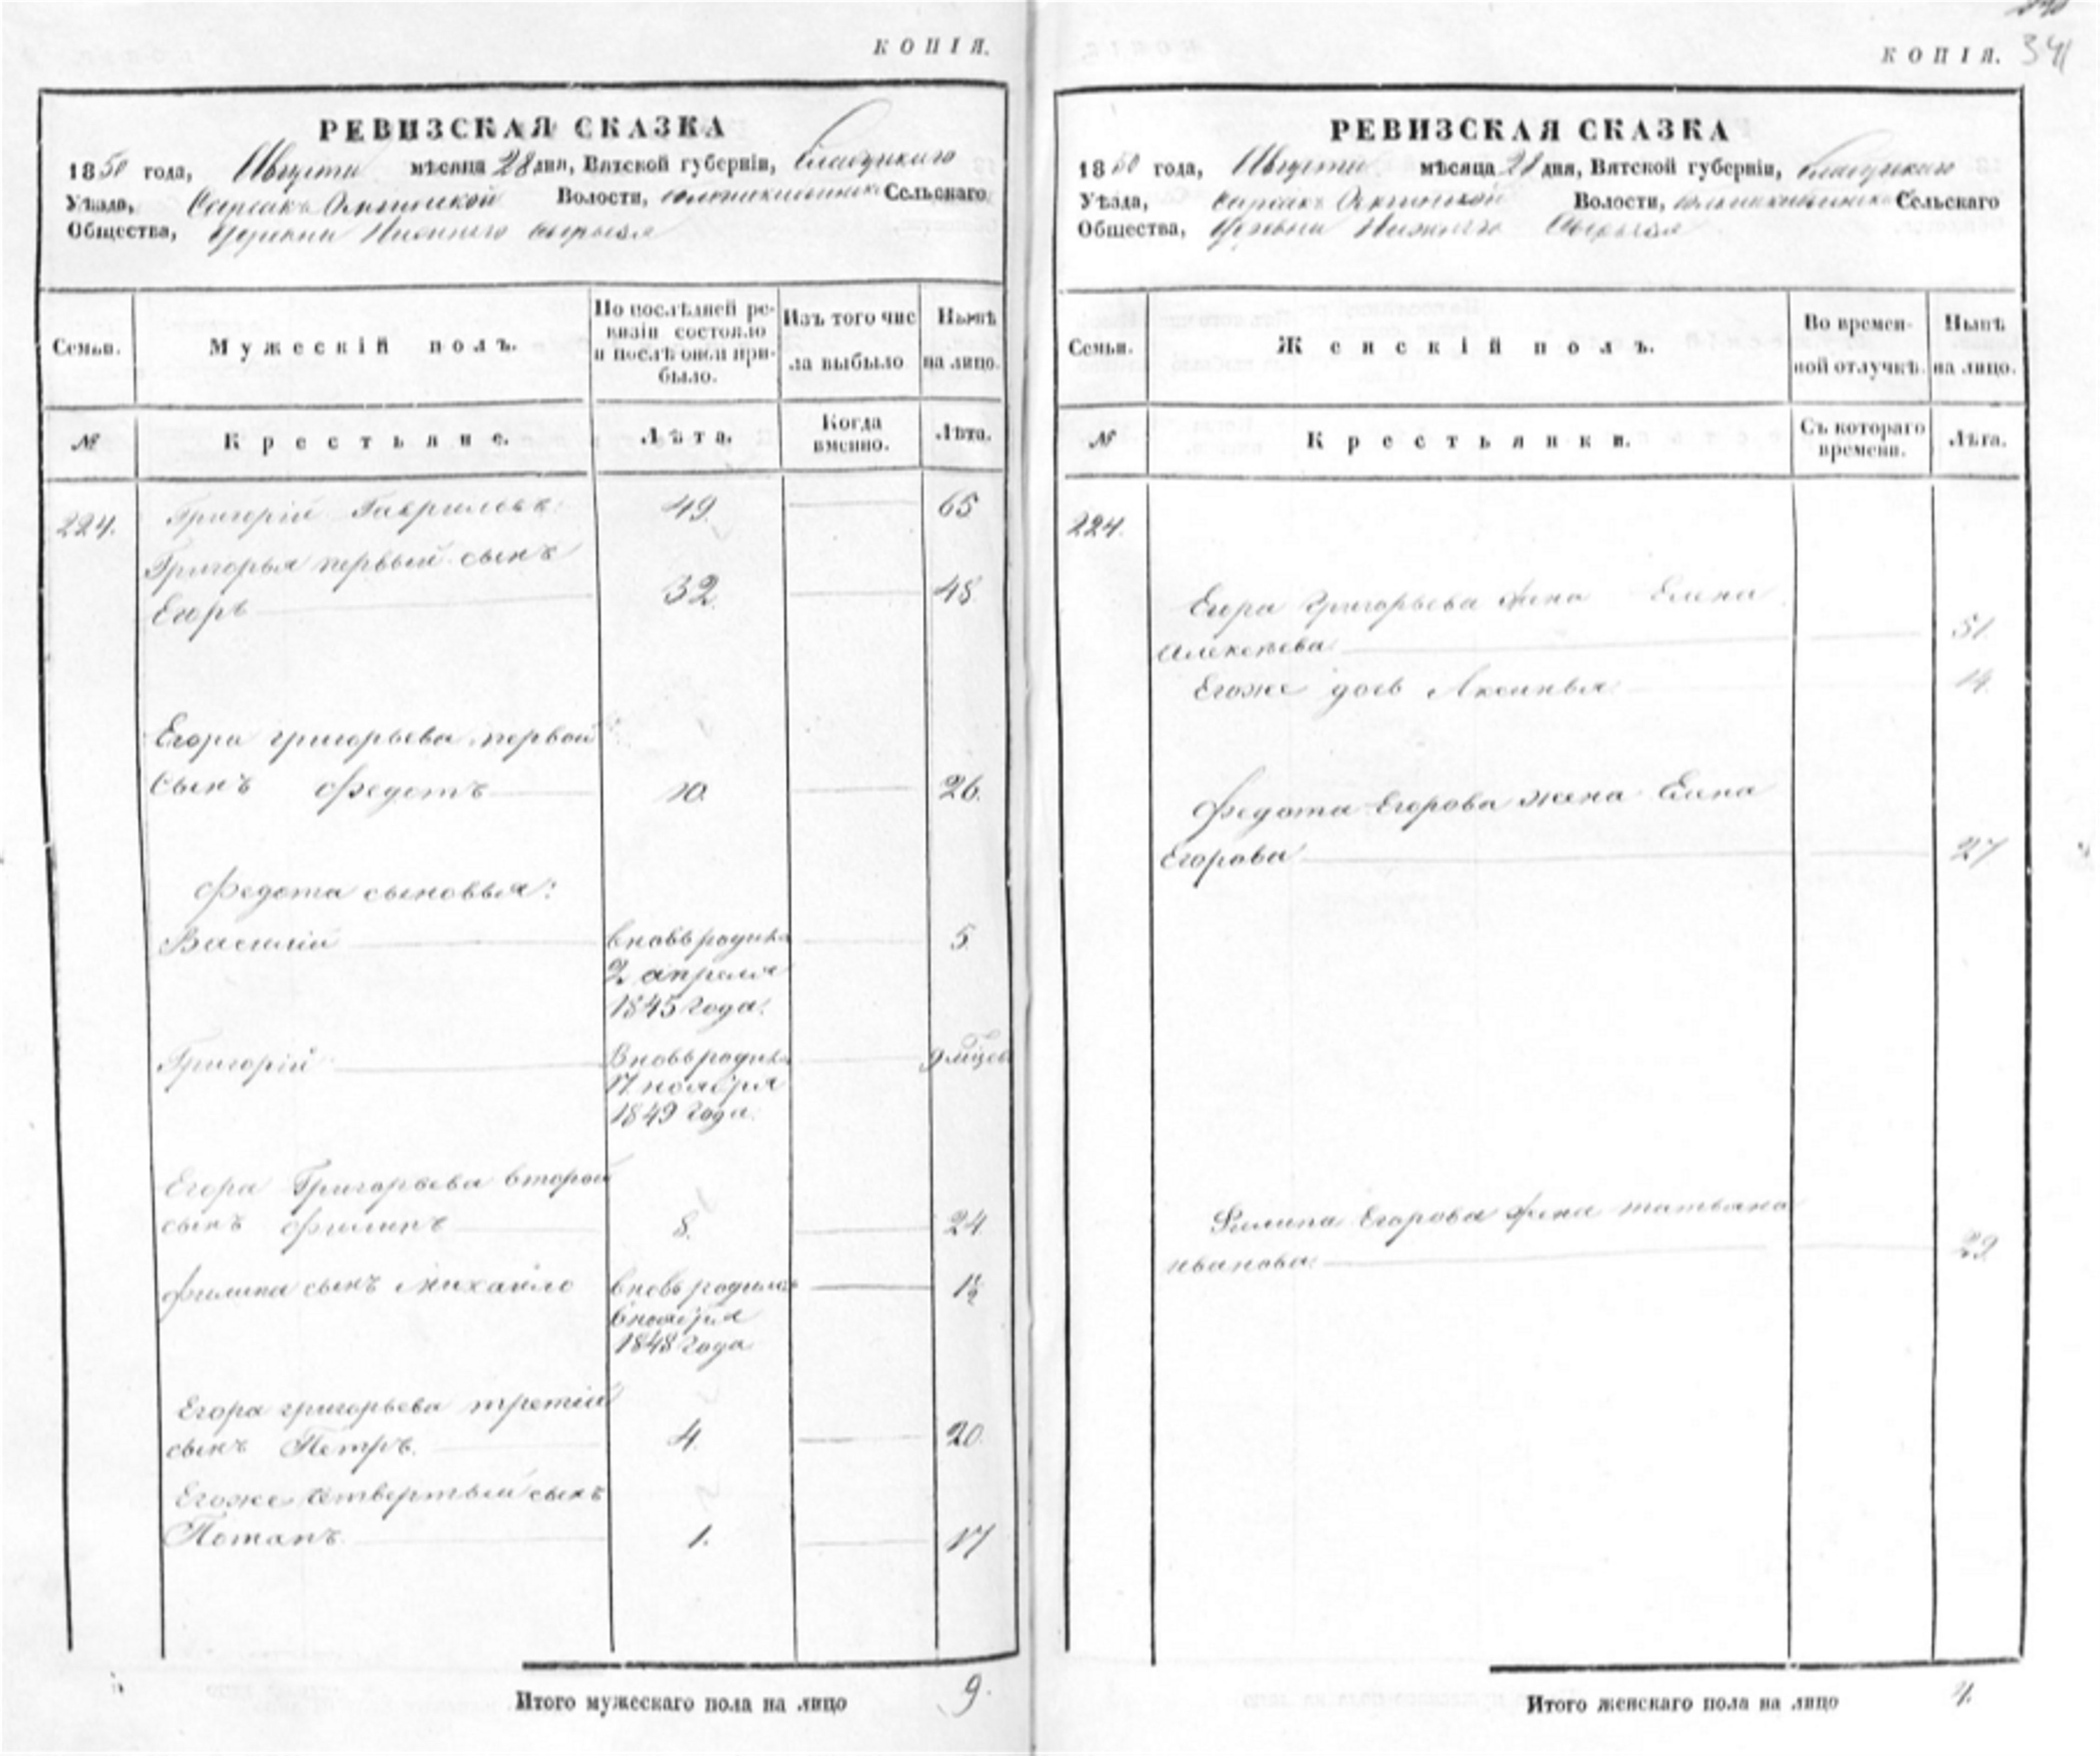 КОПІЯ.
РЕВИЗСКАЯ СКАЗКА
1850 года, Августа мѣсяца 28 дня, Вятской губерніи,
Уѣзда, Волости, Сельскаго
Общества, Деревни Нижняго
Семьи. Мужескій полъ. По послѣдней ре-визіи состояло и послѣ оной при-было. Изъ того чис ла выбыло Нынѣ на лицо.
№ Крестьяне. Лѣта. Когда именно. Лѣта.
224. Григорій Гавриловъ. 49. 65
Григорья первый сынъ
Егоръ 32. 48.
Егора григорьева первой
сынъ Федотъ 10. 26.
Федота сыновья:
Василій вновь родился 5.
2 апреля
1845 года.
Григорій Вновь родился 9 мѣсяцов
17 ноября
1849 года.
Егора Григорьева второй
сынъ Филипъ 8. 24.
Филипа сынъ Михайло вновь родился 1½
ноября
1848 года
Егора григорьева третій
сынъ Петръ. 4. 20.
Егоже четвертый сынъ
Потапъ. 1. 17
Итого мужескаго пола на лицо 9.
КОПІЯ. 341
РЕВИЗСКАЯ СКАЗКА
1850 года, Августа мѣсяца 28 дня, Вятской губерніи,
Уѣзда, Волости, Сельскаго
Общества, Деревни Нижняго
Семьи. Женскій полъ. Во времен-ной отлучкѣ. Нынѣ на лицо.
№ Крестьянки. Съ котораго времени. Лѣта.
224.
Егора Григорьева жена Елена
Алексѣева 51.
Егоже дочь Аксинья 14.
Федота Егорова жена Елена
Егорова 27
Филипа Егорова жена татьяна
иванова 29.
Итого женскаго пола на лицо 4.